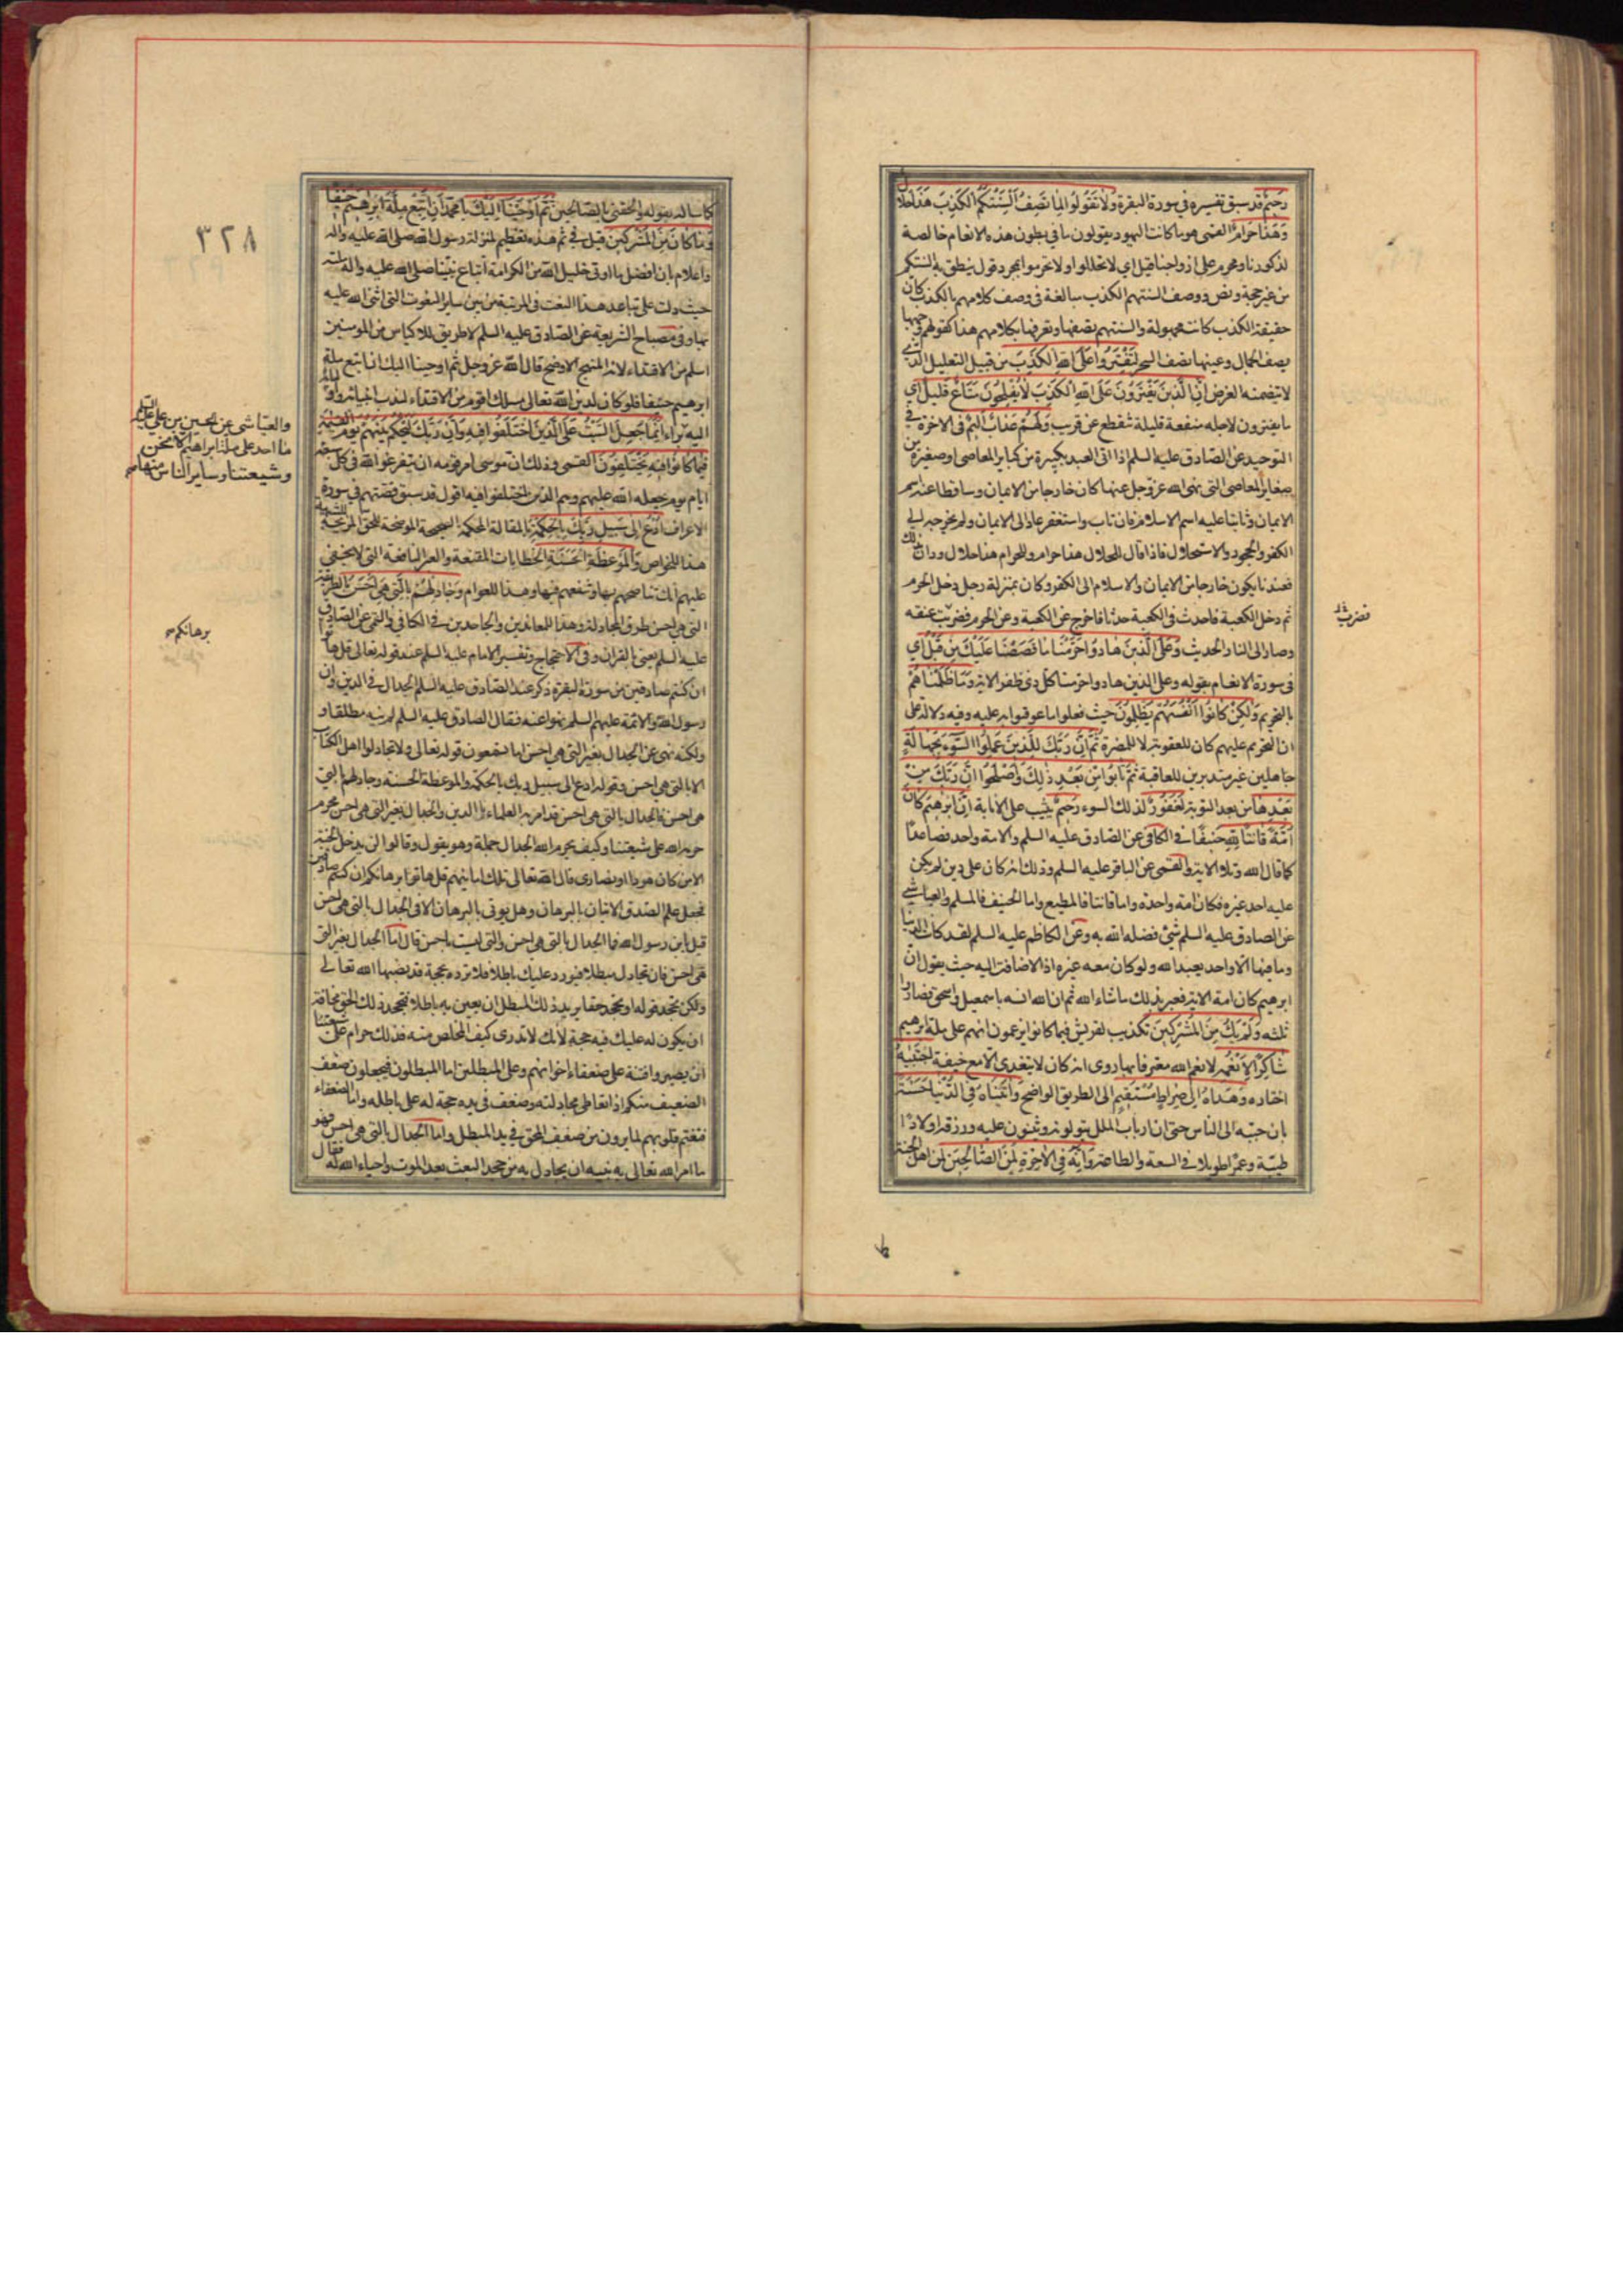 رَحيمٌ قد سبق تفسيره في سورة البقرة وَلا تَقُولُوا لِمَا تَصِفُ اَلْسِنَتُكُمُ الْكَذِبَ هَذَا حَلالٌ
وَهَذَا حَرَامٌ القمى هو ما كانت اليهود يقولون ما في بطون هذه الانعام خالصة
لذكورنا ومحرم على ازواجنا قيل اي لا تحللوا ولا تحرموا بمجرد قول ينطق به السنتكم
من غير حجة ونص ووصف السنتهم الكذب مبالغة في وصف كلامهم بالكذب كان
حقيقة الكذب كانت مجهولة والسنتهم تصفها وتعرفها بكلامهم هذا كقولهم وجهها
يصف الجمال وعينها تصف السحر لِتَفْتَرُوا عَلَى اللهِ الْكَذِبَ من قبيل التعليل الذي
لا يتضمنه الغرض اِنَّ الَّذِينَ يَفْتَرُونَ عَلَى اللهِ الْكَذِبَ لا يُفْلِحُونَ مَتَاعٌ قَليلٌ اي
ما يفترون لاجله منفعة قليلة تنقطع عن قريب وَلَهُمْ عَذَابٌ اَليمٌ في الاخرة في
التوحيد عن الصادق عليه السلم اذا اتى العبد بكبيرة من كباير المعاصى او صغيرة من
صغاير المعاصى التى نهى الله عز وجل عنها كان خارجا من الايمان وساقطا عنه اسم
الايمان وثابتا عليه اسم الاسلام فان تاب واستغفر عاد الى الايمان ولم يخرجه الى
الكفر والجحود والاستحلال فاذا قال للحلال هذا حرام وللحرام هذا حلال ودان بذلك
فعندنا يكون خارجا من الايمان والاسلام الى الكفر وكان بمنزلة رجل دخل الحرم
ثم دخل الكعبة فاحدث في الكعبة حدثا فاخرج عن الكعبة وعن الحرم فضربت عنقه
فضربت
وصار الى النار الحديث وَعَلَى الَّذِينَ هَادُوا حَرَّمْنَا مَا قَصَصْنَا عَلَيْكَ مِن قَبْلُ اي
في سورة الانعام بقوله وعلى الذين هادوا حرمنا كل ذى ظفر الاية وَمَا ظَلَمْنَاهُمْ
بالتحريم وَلكِنْ كَانُوا اَنْفُسَهُمْ يَظْلِمُونَ حيث فعلوا ما عوقبوا به عليه وفيه دلالة على
ان التحريم عليهم كان للعقوبة لا للمضرة ثُمَّ اِنَّ رَبَّكَ لِلَّذِينَ عَمِلُوا السُّوءَ بِجَهَالَةٍ
جاهلين غير متدبرين للعاقبة ثُمَّ تَابُوا مِنْ بَعْدِ ذلِكَ وَاَصْلَحُوا اِنَّ رَبَّكَ مِنْ
بَعْدِهَا من بعد التوبة لَغَفُورٌ لذلك السوء رَحيمٌ يثيب على الانابة اِنَّ اِبْرهيمَ كَانَ
اُمَّةً قَانِتًا لِلّهِ حَنيفًا في الكافي عن الصادق عليه السلم والامة واحد فصاعدا
كما قال الله وتلا الاية والقمى عن الباقر عليه السلم وذلك انه كان على دين لم يكن
عليه احد غيره فكان امة واحدة واما قانتا فالمطيع واما الحنيف فالمسلم والعياشي
عن الصادق عليه السلم شئ فضله الله به وعن الكاظم عليه السلم لقد كانت الدنيا
وما فيها الا واحد يعبد الله ولو كان معه غيره اذا لاضافه اليه حيث يقول ان
ابرهيم كان امة الاية فعبر بذلك ما شاء الله ثم ان الله انسه باسمعيل واسحق فصاروا
ثلثه وَلَمْ يَكُ مِنَ الْمُشْرِكِينَ تكذيب لقريش فيما كانوا يزعمون انهم على ملة ابرهيم
شَاكِرًا لاَنْعُمِهِ لا نعم الله معترفا بها روى انه كان لا يتغدى الا مع ضيفه اِجْتَبيهُ
اختاره وَهَدَاهُ اِلى صِرَاطٍ مُسْتَقيمٍ الى الطريق الواضح وَاتَيْنَاهُ فِي الدُّنْيَا حَسَنَةً
بان حببه الى الناس حتى ان ارباب الملل يتولونه ويثنون عليه ورزقه اولادا
طيبة وعمرا طويلا في السعة والطاعة وَاِنَّهُ فِي الاخِرَةِ لَمِنَ الصَّالِحِينَ لمن اهل الجنة
٣٢٨
كما ساله بقوله والحقنى بالصالحين ثُمَّ اَوْحَيْنَا اِلَيْكَ يا محمد اَنِ اتَّبِعْ مِلَّةَ اِبْرَاهيمَ حَنيفًا
وَمَا كَانَ مِنَ الْمُشْرِكينَ قيل في ثم هذه تعظيم لمنزلة رسول الله صلى الله عليه واله
واعلام بان افضل ما اوتى خليل الله من الكرامة اتباع نبينا صلى الله عليه واله ملته
حيث دلت على تباعد هذا النعت في المرتبة من بين ساير النعوت التى اثنى الله عليه
بها وفي مصباح الشريعة عن الصادق عليه السلم لا طريق للاكياس من المومنين
اسلم من الاقتداء لانه المنهج الاوضح قال الله عز وجل ثم اوحينا اليك ان اتبع ملة
ابرهيم حنيفا فلو كان لدين الله تعالى مسلك اقوم من الاقتداء لندب انبيائه واوليائه
والعياشى عن الحسين بن على عليهما السلم
ما احد على ملة ابراهيم الا نحن
وشيعتنا وساير الناس منها براء
اليه اِنَّمَا جُعِلَ السَّبْتُ عَلَى الَّذِينَ اخْتَلَفُوا فيهِ وَاِنَّ رَبَّكَ لَيَحْكُمُ بَيْنَهُمْ يَوْمَ الْقيمَةِ
فيمَا كَانُوا فيهِ يَخْتَلِفُونَ القمى وذلك ان موسى امر قومه ان يتفرغوا لله في كل سبعة
ايام يوم يجعله الله عليهم وهم الذين اختلفوا فيه اقول قد سبق قصتهم في سورة
الاعراف اُدْعُ اِلى سَبيلِ رَبِّكَ بِالْحِكْمَةِ بالمقالة المحكمة الصحيحة الموضحة للحق المزيحة للشبهة
هذا للخواص وَالْمَوْعِظَةِ الْحَسَنَةِ الخطابات المقنعة والعبر النافعة التى لا يخفى
عليهم انك تناصحهم بها وتنفعهم فيها وهذا للعوام وَجَادِلْهُمْ بِالَّتِي هِيَ اَحْسَنُ بالطريقة
التى هي احسن طرق المجادلة وهذا للمعاندين والجاحدين في الكافي والقمى عن الصادق
عليه السلم يعنى بالقران وفي الاحتجاج وتفسير الامام عليه السلم عند قوله تعالى قل هاتوا
برهانكم
ان كنتم صادقين من سورة البقرة ذكر عند الصادق عليه السلم الجدال في الدين وان
رسول الله والائمة عليهم السلم نهوا عنه فقال الصادق عليه السلم لم ينه مطلقا و
ولكنه نهى عن الجدال بغير التى هي احسن اما تسمعون قوله تعالى ولا تجادلوا اهل الكتاب
الا بالتى هي احسن وقوله ادع الى سبيل ربك بالحكمة والموعظة الحسنة وجادلهم بالتى
هي احسن فالجدال بالتى هي احسن قد امر به العلماء بالدين والجدال بغير التى هي احسن محرم
حرمه الله على شيعتنا وكيف يحرم الله الجدال جملة وهو يقول وقالوا لن يدخل الجنة
الا من كان هودا او نصارى قال الله تعالى تلك امانيهم قل هاتوا برهانكم ان كنتم صادقين
فجعل علم الصدق الاتيان بالبرهان وهل يوتى بالبرهان الا في الجدال بالتى هي احسن
قيل يابن رسول الله فما الجدال بالتى هي احسن والتى ليست باحسن قال اما الجدال بغير التى
هي احسن فان تجادل مبطلا فيورد عليك باطلا فلا ترده بحجة قد نصبها الله تعالى
ولكن تجحد قوله او تجحد حقا يريد ذلك المبطل ان يعين به باطله فتجحد ذلك الحق مخافة
ان يكون له عليك فيه حجة لانك لا تدرى كيف المخلص منه فذلك حرام على شيعتنا
ان يصيروا فتنة على ضعفاء اخوانهم وعلى المبطلين اما المبطلون فيجعلون ضعف
الضعيف منكم اذا تعاطى مجادلته وضعف في يده حجة له على باطله واما الضعفاء
فتغتم قلوبهم لما يرون من ضعف المحق في يد المبطل واما الجدال بالتى هي احسن فهو
ما امر الله تعالى به نبيه ان يجادل به من جحد البعث بعد الموت واحياءه الله له فقال